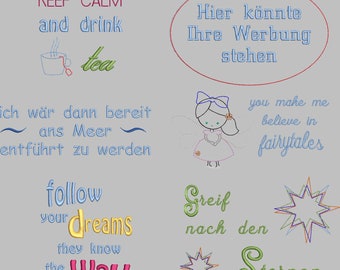 KEEP CALM
and drink
tea
Hier könnte
Ihre Werbung
stehen
ich wär dann bereit
ans Meer
entführt zu werden
you make me
believe in
fairytales
follow
your dreams
they know
the way
Greif
nach den
Sternen